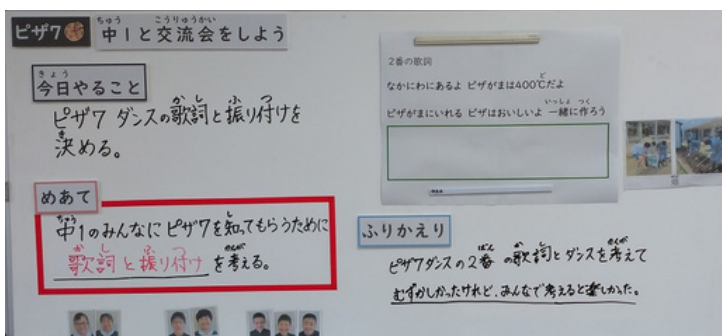 ピザ7
中1と交流会をしよう
今日やること
ピザ7 ダンスの歌詞と振り付けを
決める。
めあて
中1のみんなに ピザ7を知ってもらうために
歌詞と振り付けを考える。
2番の歌詞
なかにわにあるよ ピザがまは400℃だよ
ピザがまにいれる ピザはおいしいよ 一緒に作ろう
ふりかえり
ピザ7ダンスの2番の歌詞とダンスを考えて
むずかしかったけれど、みんなで考えると楽しかった。